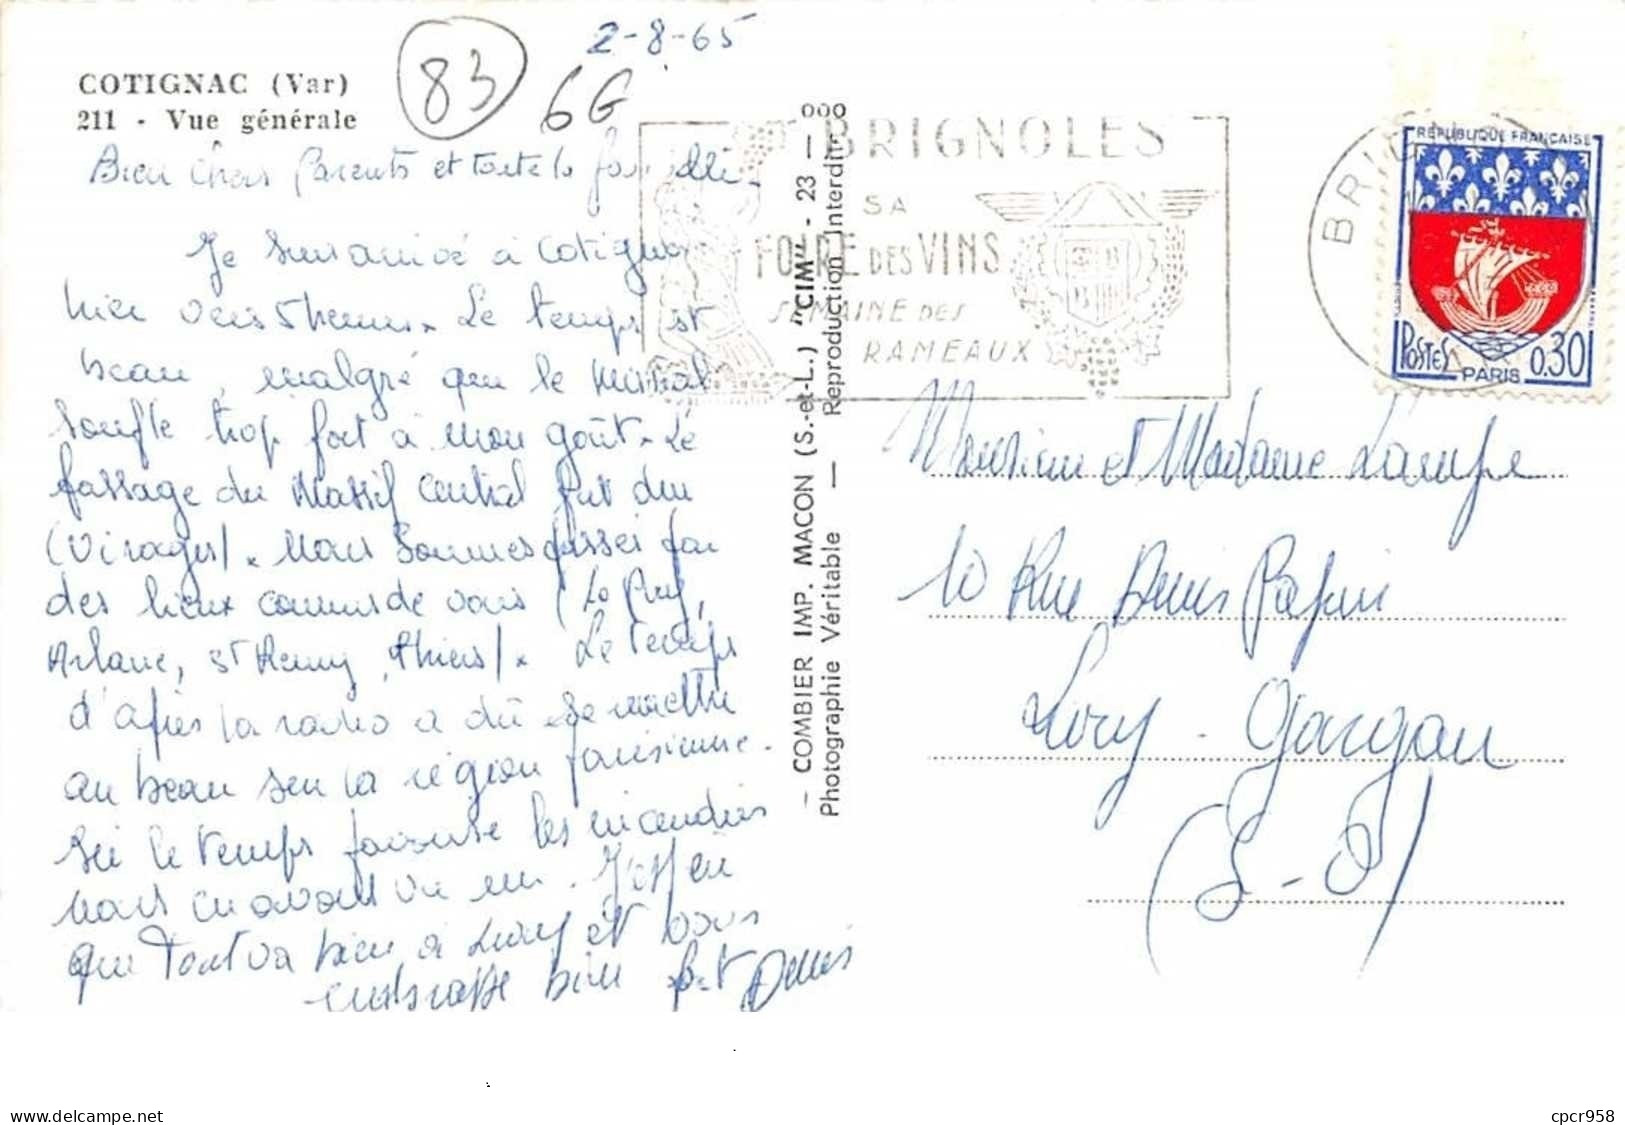 2-8-65
83
6G
COTIGNAC (Var)
211 - Vue générale
Bien Chers Parents et toute la famille.
Je suis arrivé à Cotignac
hier vers 5 heures. Le temps est
beau, malgré que le mistral
souffle trop fort à mon goût. Le
passage du Massif Central fut dur
(Virages). Nous sommes passés par
des lieux connus de vous (Le Puy,
Arlanc, St Remy, Thiers). Le temps
d'après la radio a dû se mettre
au beau sur la région parisienne.
Ici le temps favorise les incendies
nous en avons vu un. J'espère
que tout va bien à Livry et vous
embrasse bien fort Denis
— COMBIER IMP. MACON (S.-et-L.) "CIM" - 23 — ooo
Photographie Véritable — Reproduction Interdite
BRIGNOLES
SA
FOIRE DES VINS
SEMAINE DES
RAMEAUX
BRIG
RÉPUBLIQUE FRANÇAISE
POSTES
PARIS
0,30
Monsieur et Madame Lampe
10 Rue Denis Papin
Livry - Gargan
(S-O)
www.delcampe.net
cpcr958